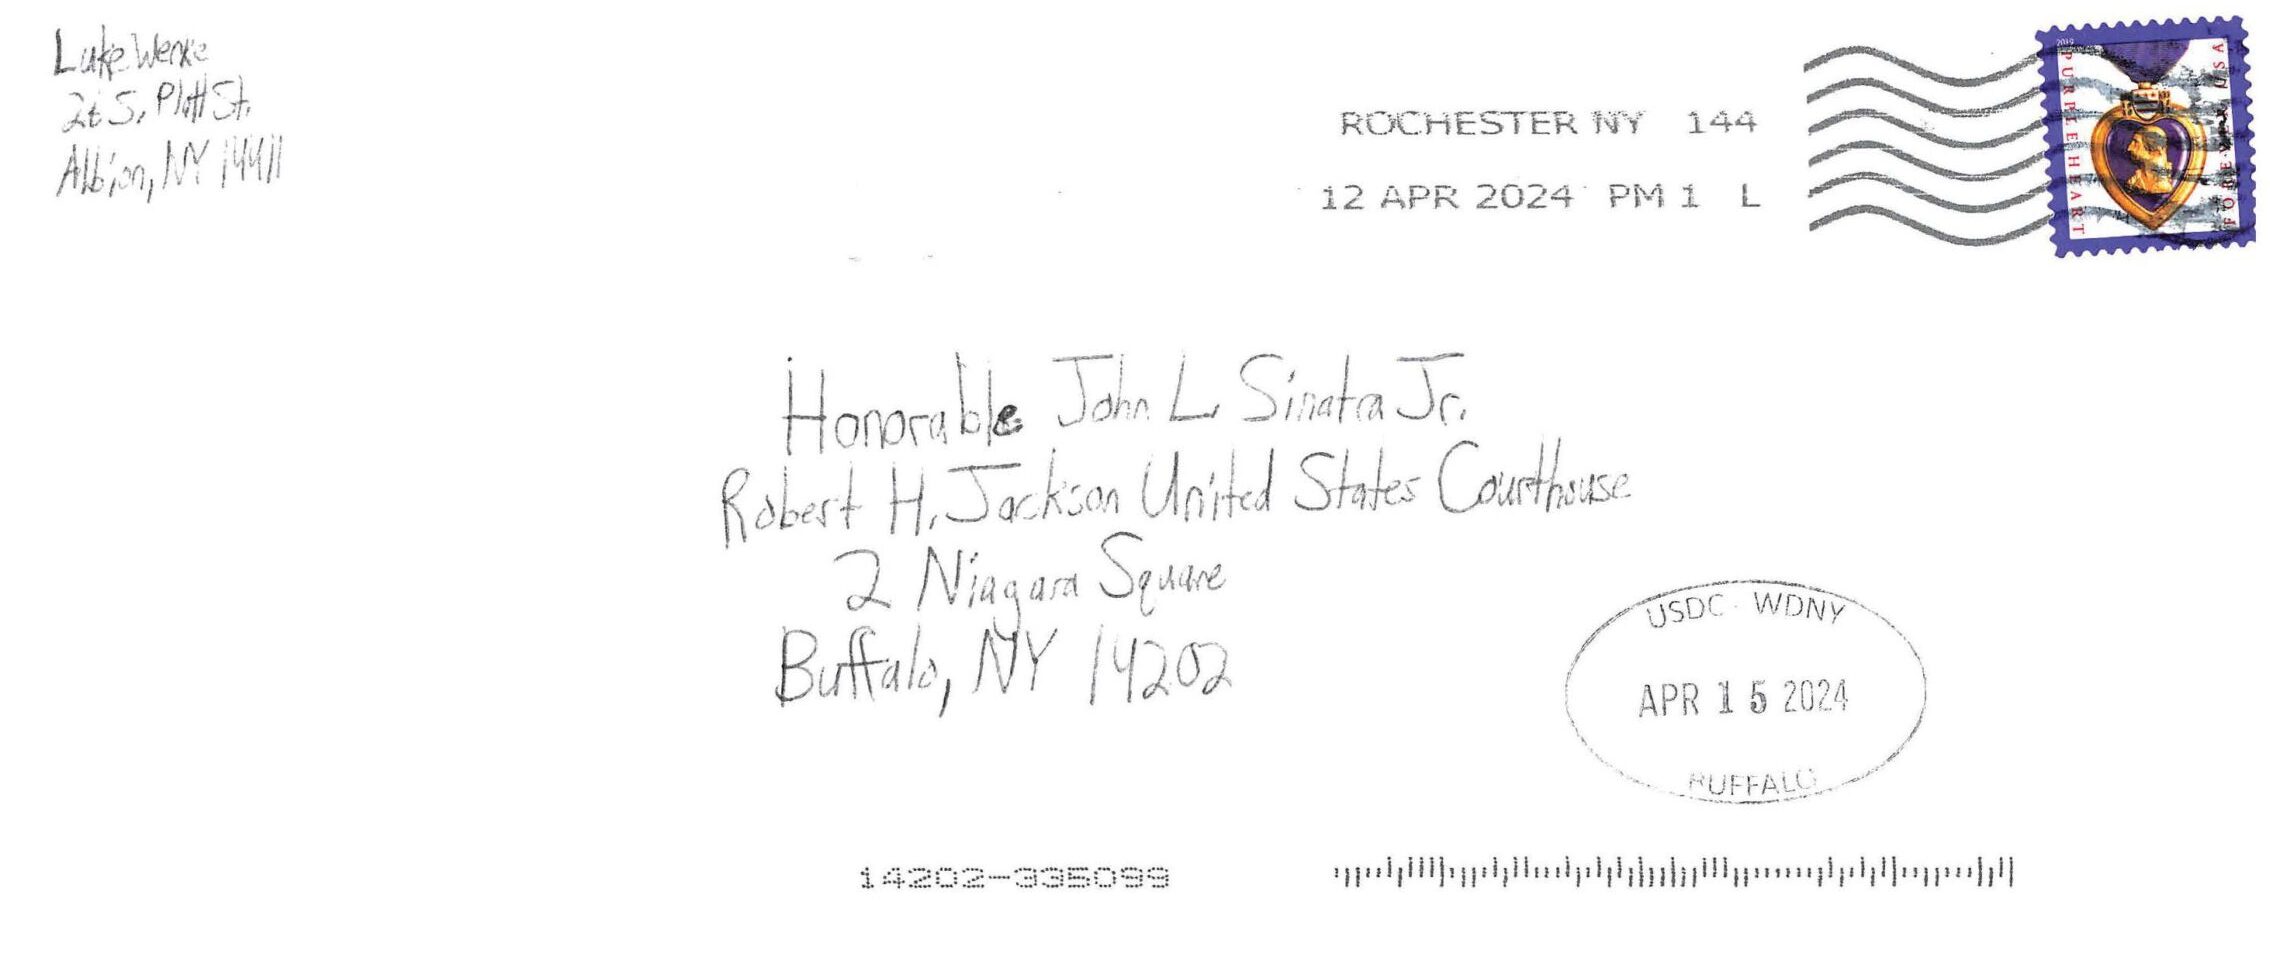 Luke Wenke
26 S. Platt St.
Albion, NY 14411
ROCHESTER NY 144
12 APR 2024 PM 1 L
2019
PURPLE HEART
USA
FOREVER
Honorable John L. Sinatra Jr.
Robert H. Jackson United States Courthouse
2 Niagara Square
Buffalo, NY 14202
USDC - WDNY
APR 15 2024
BUFFALO
14202-335099